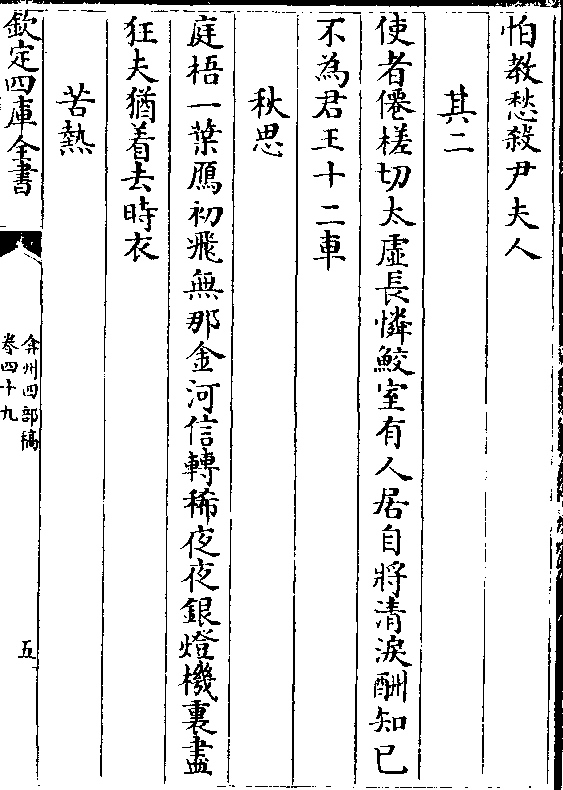 怕教愁殺尹夫人
其二
使者僊槎切太虛長憐鮫室有人居自將清淚酬知已
不為君王十二車
秋思
庭梧一葉鴈初飛無那金河信轉稀夜夜銀燈機裏盡
狂夫猶着去時衣
苦熱
欽定四庫全書
弇州四部稿
卷四十九
五